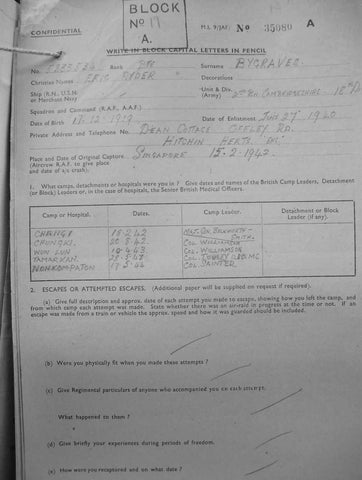 BLOCK
No 17
A.
CONFIDENTIAL
M.I. 9/JAP/ No 35080 A
WRITE IN BLOCK CAPITAL LETTERS IN PENCIL
No. Rank PTE Surname BYGRAVES
Christian Names ERIC Decorations
Ship (R.N., U.S.N. or Merchant Navy) Unit & Div. (Army) 2ND BN CAMBRIDGESHIRE 18TH
Squadron and Command (R.A.F., A.A.F.)
Date of Birth 17.12.1919 Date of Enlistment JUNE 27 1940
Private Address and Telephone No. DEAN COTTAGE OFFLEY RD.
HITCHIN HERTS
Place and Date of Original Capture SINGAPORE 15.2.1942
(Aircrew R.A.F. to give place and date of a/c crash);
1. What camps, detachments or hospitals were you in ? Give dates and names of the British Camp Leaders, Detachment (or Block) Leaders or, in the case of hospitals, the Senior British Medical Officers.
Camp or Hospital. Dates. Camp Leader. Detachment or Block Leader (if any).
CHANGI 15.2.42
CHUNGKI COL WILLIAMSON
WUN LUN COL WILLIAMSON
TAMARKAN COL TOOSEY
NONKOMPATON COL SAINTER
2. ESCAPES OR ATTEMPTED ESCAPES. (Additional paper will be supplied on request if required).
(a) Give full description and approx. date of each attempt you made to escape, showing how you left the camp, and from which camp each attempt was made. State whether there was an air-raid in progress at the time or not. If an escape was made from a train or vehicle the approx. speed and how it was guarded should be included.
(b) Were you physically fit when you made these attempts ?
(c) Give Regimental particulars of anyone who accompanied you on each attempt.
What happened to them ?
(d) Give briefly your experiences during periods of freedom.
(e) How were you recaptured and on what date ?